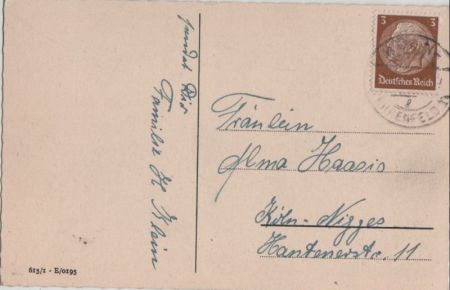 sendet Dir
Familie H. Klein
613/1 - E/0195
3 3
Deutsches Reich
KÖLN
EHRENFELD
Fräulein
Alma Haasis
Köln-Nippes
Xantenerstr. 11